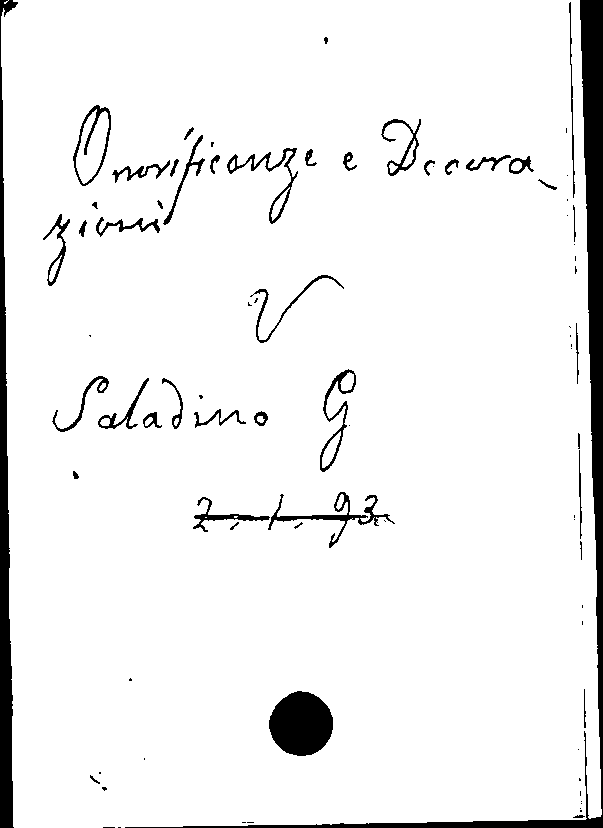 Onorificenze e Decora_
zioni
V
Saladino G
2.1.93.